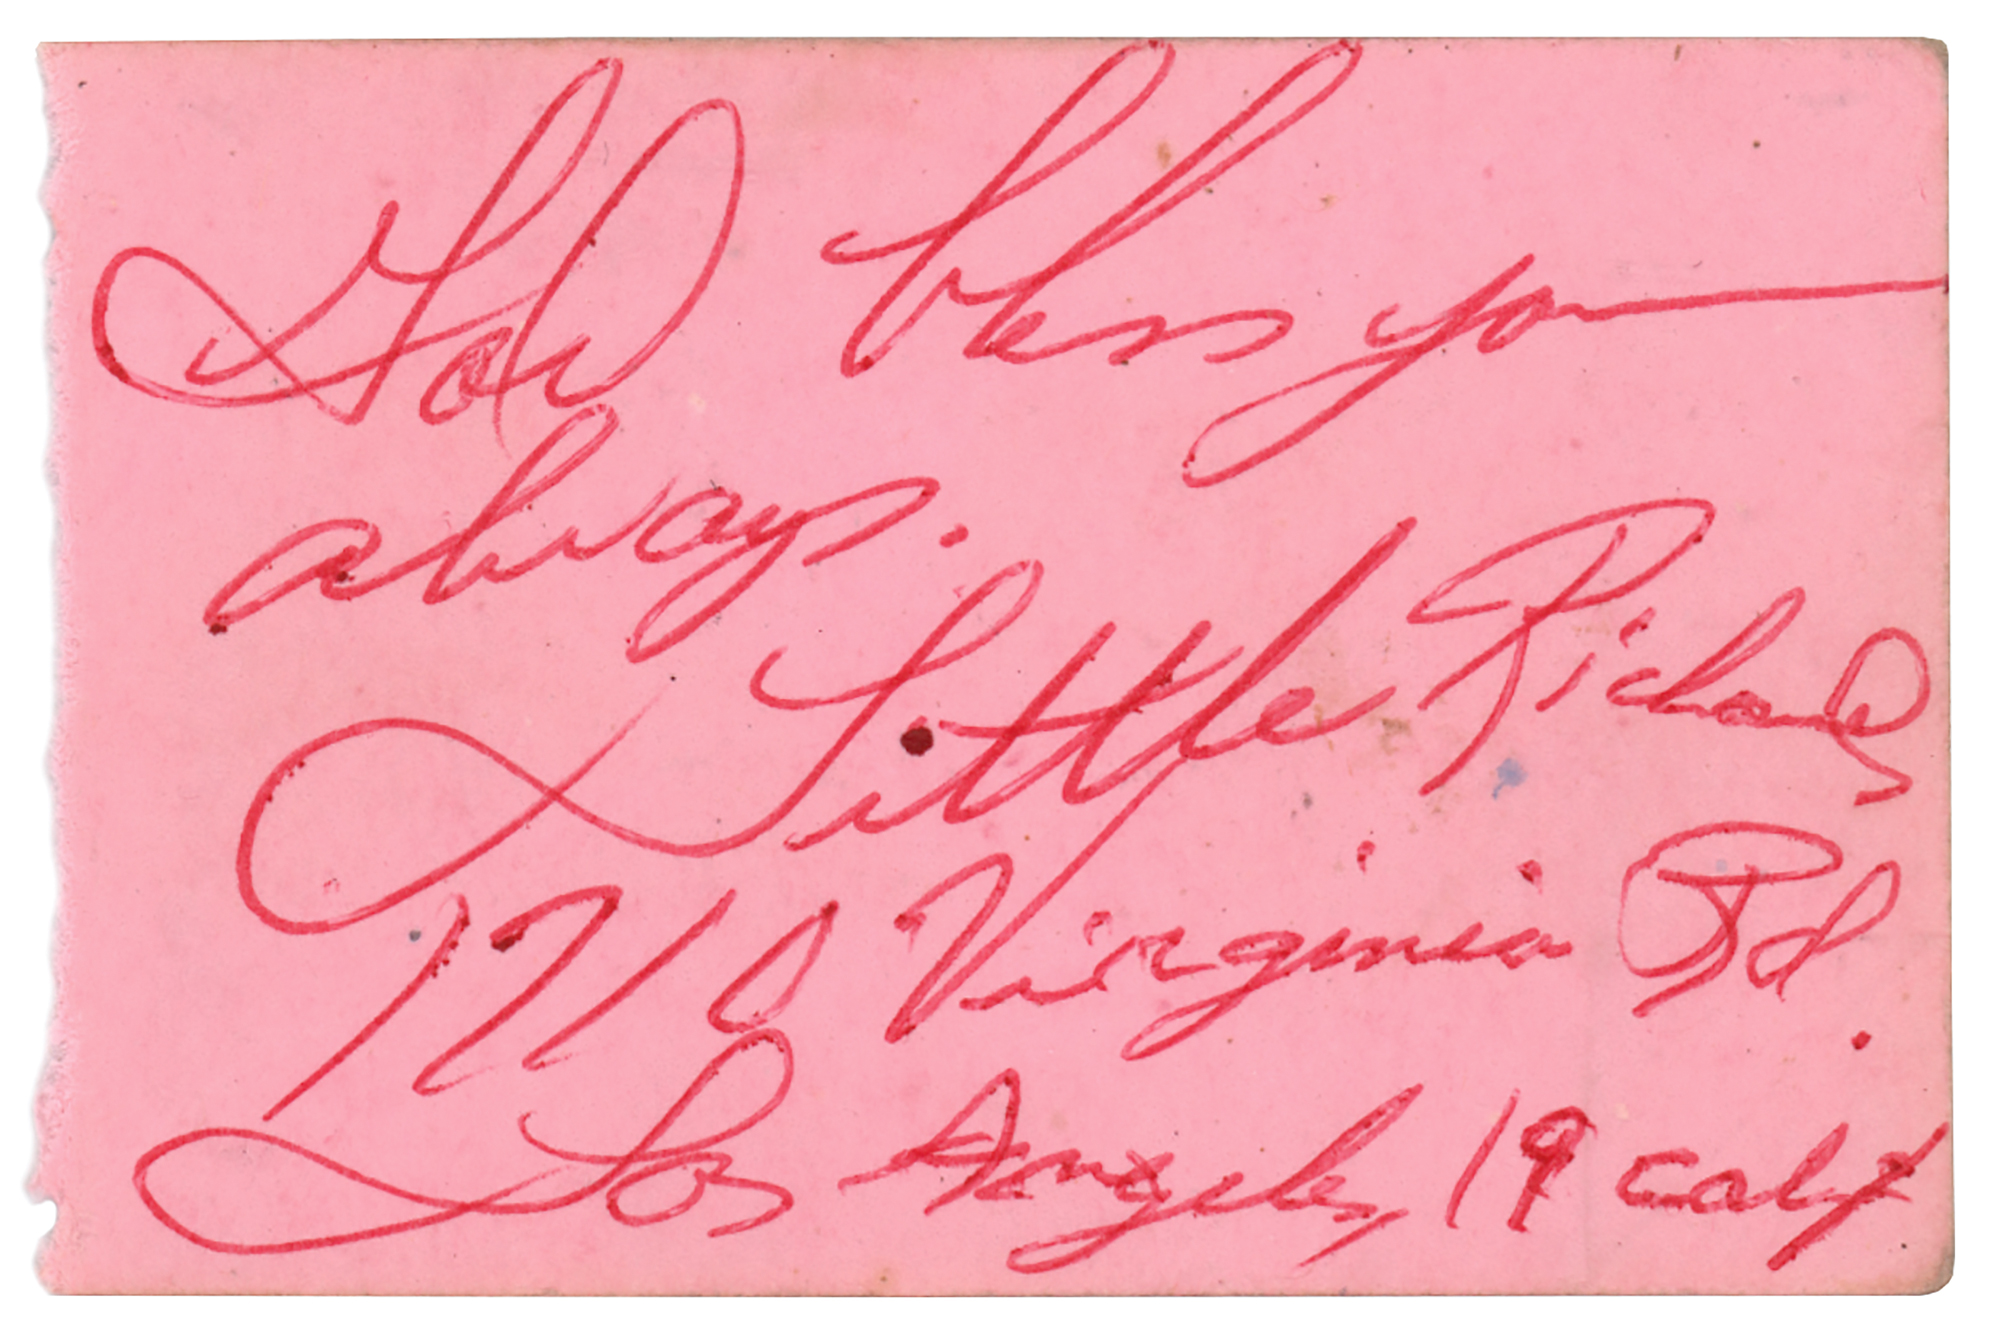 God bless you
always.
Little Richard
1710 Virginia Rd.
Los Angeles, 19 Calif